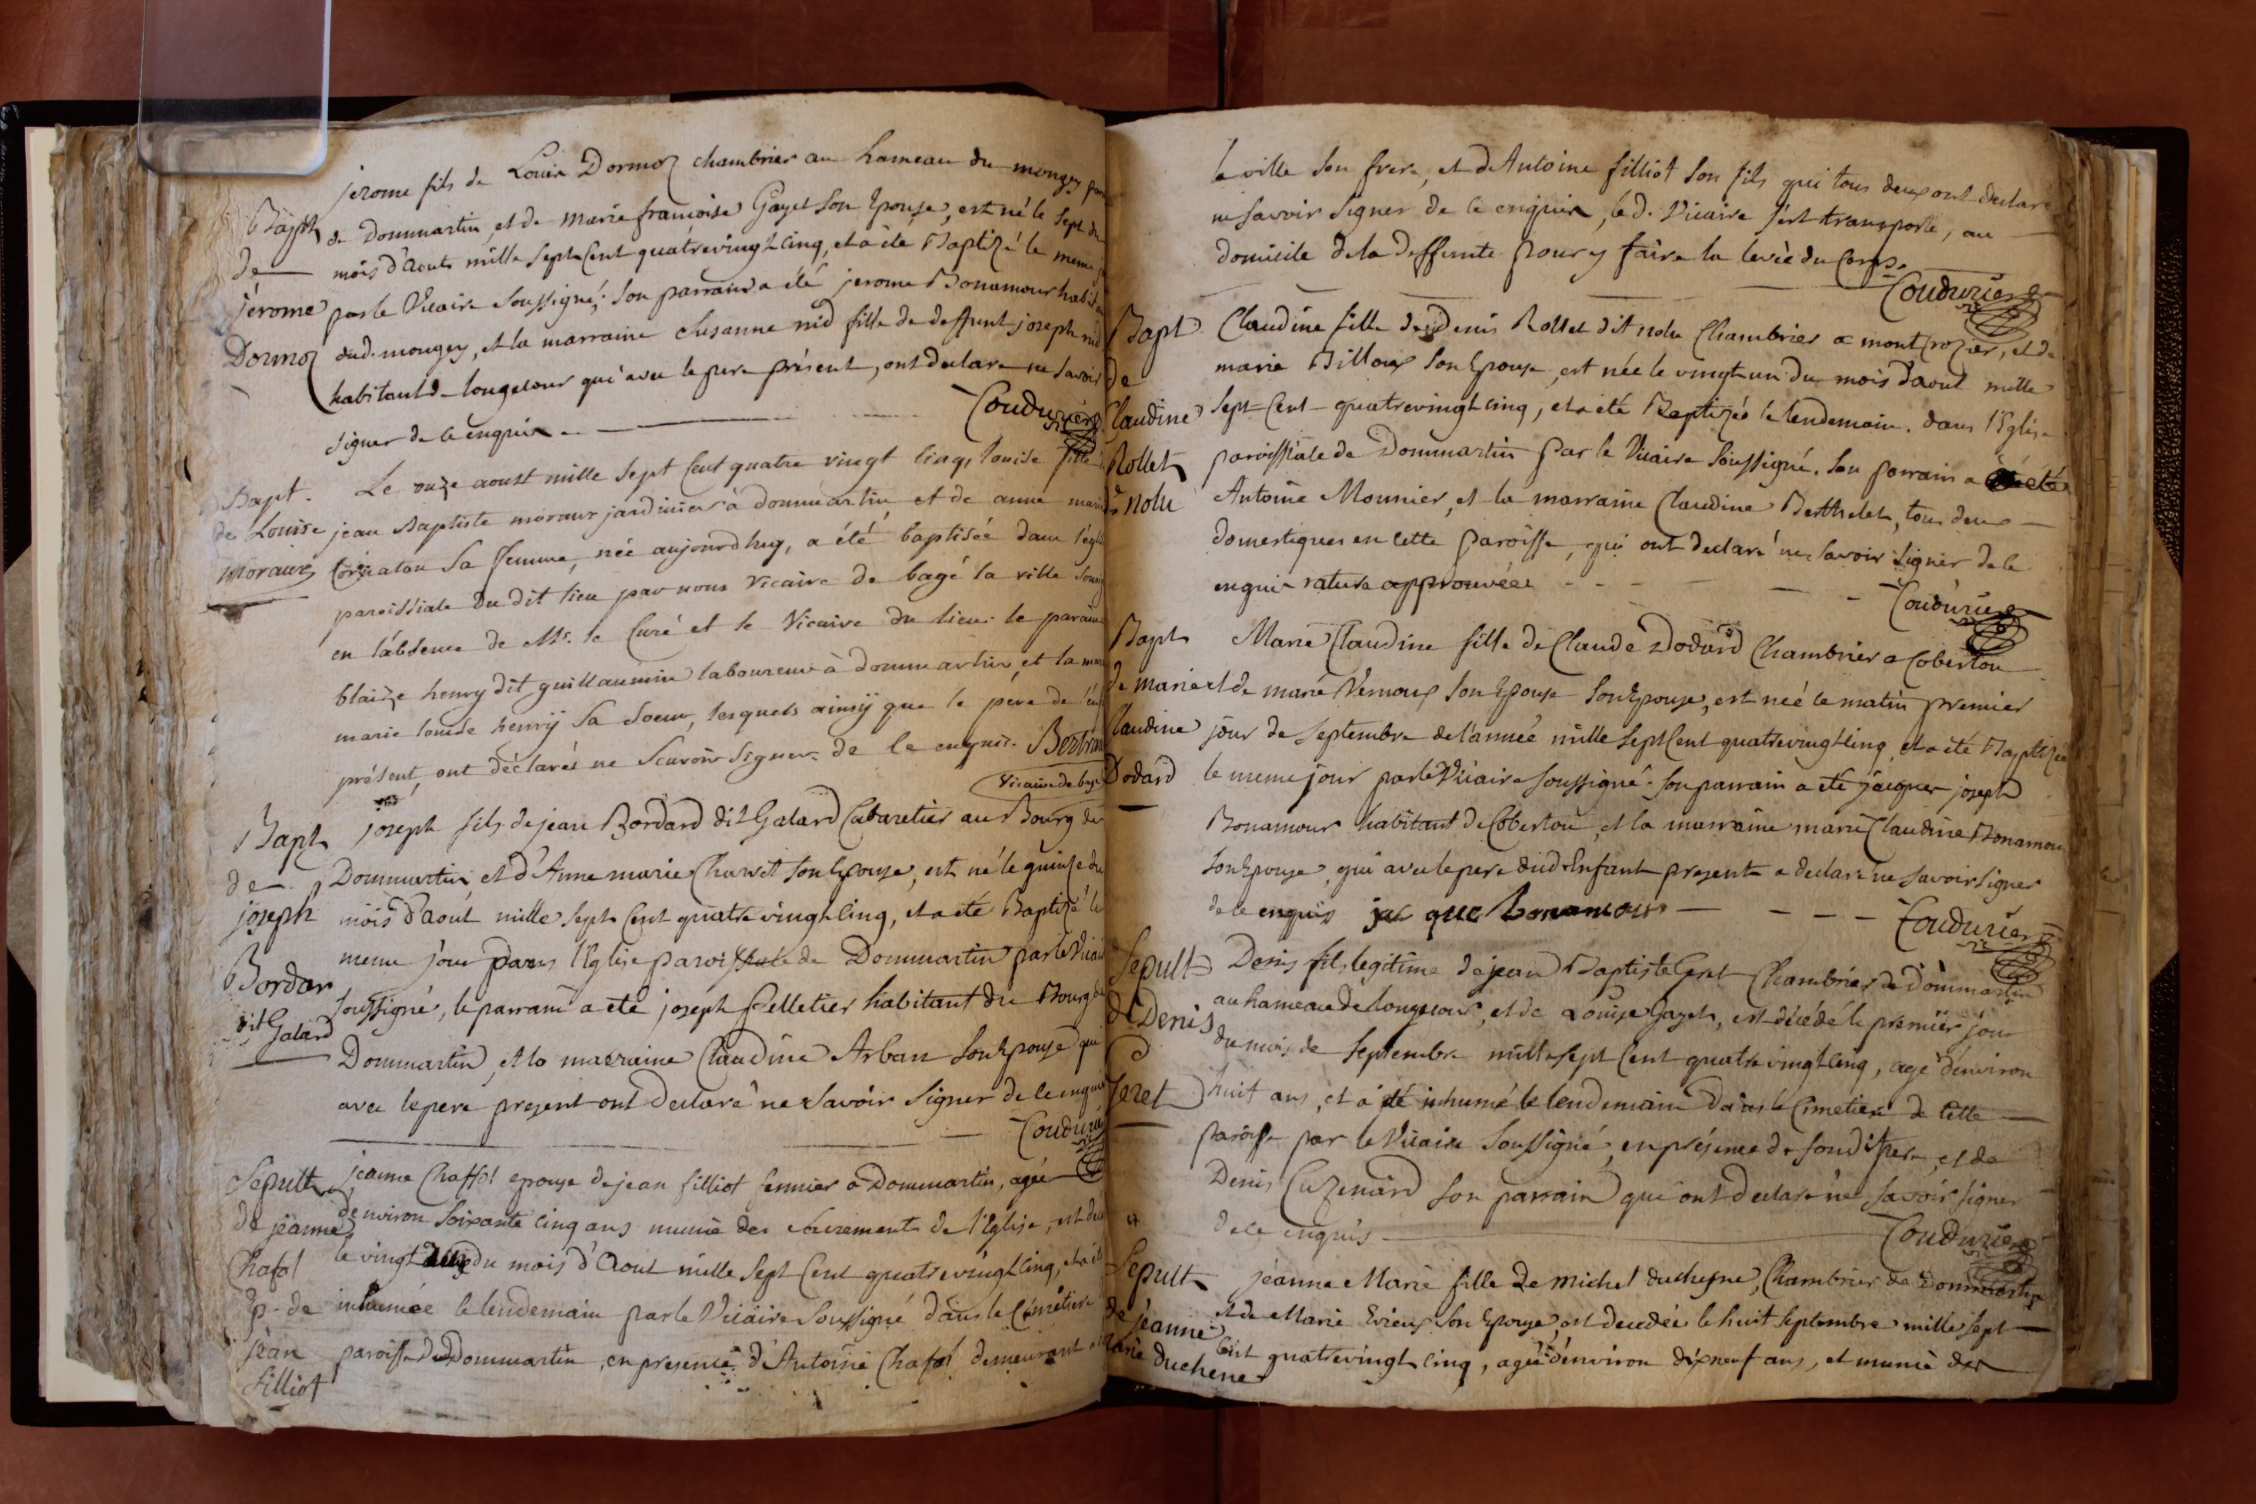 jerome fils de Louis Dormoz chambrier au hameau du mongey
de Dommartin, et de marie francoise Gayet son Epouse, est né le sept du
mois d'Aouts mille sept Cent quâtrevingt cinq, et a été Baptizé le meme
par le Vicaire Soussigné; son parrain a été jerome Bonamour habit
dud. mongey, et la marraine Susanne nid fille de deffunt joseph nid
habitant de longecour qui avec le pere présent, ont declaré ne savoir
signer de ce enquis.
Coudurier
Bapth
de
jérome
Dormoz
Le onze aoust mille sept Cent quatre vingt Cinq, louise fille
jean Baptiste moraux jardinier à dommartin, et de anne marie
sa femme, née aujourdhuy, a été baptisée dans l'egli
paroissiale du dit lieu par nous Vicaire de bagé la ville
en l'absence de Mr. le Curé et le Vicaire du lieu. le parain
blaize henry dit guillaumin laboureur à dommartin et la
marie louise henrÿ sa Soeur, lesquels ainsÿ que le père de
présent, ont déclarés ne Scavoir Signer de ce enquis.
Vicaire de bagé
Bapt.
de Louise
Moraux
joseph fils de jean Bordard dit Galard Cabaretier au Bourg de
Dommartin et d'Anne marie Charvet son Epouse, est né le quinze du
mois d'aout mille sept Cent quatre vingt cinq, et a été Baptizé le
meme jour dans l'Eglise paroissiale de Dommartin par le Vicai
soussigné, le parrain a été joseph Pelletier habitant du Bourg de
Dommartin, et la marraine Claudine Arban son Epouse qui
avec le pere present ont declaré ne savoir signer de ce enquis
Coudurier
Bapt
de
joseph
Bordar
dit
Galard
jeanne Chaffol epouse de jean filliot fermier a Dommartin, agée
denviron soixante cinq ans munie des sacrements de l'Eglise, est
le vingt du mois d'Aout mille sept Cent quatrevingt cinq, et a été
inhumée le lendemain par le Vicaire Soussigné dans le Cimetiere
paroisse de Dommartin, en presence d'Antoine Chafol demeurant a
Sepult
de jeanne
Chafol
Ep. de
jean
filliot
la ville son frere, et d'Antoine filliot son fils qui tous deux ont declaré
ne savoir signer de ce enquis, led. Vicaire s'est transporté, au
domicile de la deffunte pour y faire la levée du Corps.
Coudurier
Claudine fille de Denis Rollet dit nolu Chambrier a montcrozier, et de
marie Billoux son Epouse, est née le vingt un du mois d'aout mille
sept Cent quatrevingt cinq, et a été Baptizée le lendemain. dans l'Eglise
paroissiale de Dommartin par le Vicaire soussigné. son parrain a été
Antoine Mounier, et la marraine Claudine Berthelet, tous deux
domestiques en cette paroisse, qui ont declaré ne savoir signer de ce
enquis rature approuvée
Coudurier
Bapt
de
Claudine
Rollet
dt nolu
Marie Claudine fille de Claude Dodard Chambrier a Cobertou
et de marie Vernoux son Epouse son Epouse, est neé ce matin premier
jour de septembre de l'année mille sept Cent quatrevingt cinq, et a été Baptizée
le meme jour par le Vicaire soussigné. son parrain a été jacques joseph
Bonamour habitant de Cobertou, et la marraine marie Claudine Bonamour
son Epouse, qui avec le pere dud. Enfant present a declaré ne savoir signer
de ce enquis jac que bonamour
Coudurier
Bapt
de marie
Claudine
Dodard
Denis fils legitime de jean Baptiste Geret Chambrier de Dommartin
au hameau de longecour, et de Louise Gayet, est décédé le premier jour
du mois de septembre mille sept Cent quatre vingt cinq, agé d'environ
huit ans, et a été inhumé le lendemain dans le Cimetiere de cette
paroisse par le Vicaire Soussigné, en présence de son dit Pere, et de
Denis Cuzenard son parrain qui ont declaré ne savoir signer
de ce enquis
Coudurier
Sepult
de Denis
Jeret
jeanne Marie fille de michel duchesne, Chambrier de Dommartin
et de Marie son Epouse, est decedée le huit septembre mille sept
Cent quatrevingt cinq, agée d'environ dixneuf ans, et munie des
Sepult
de jeanne
marie duchene